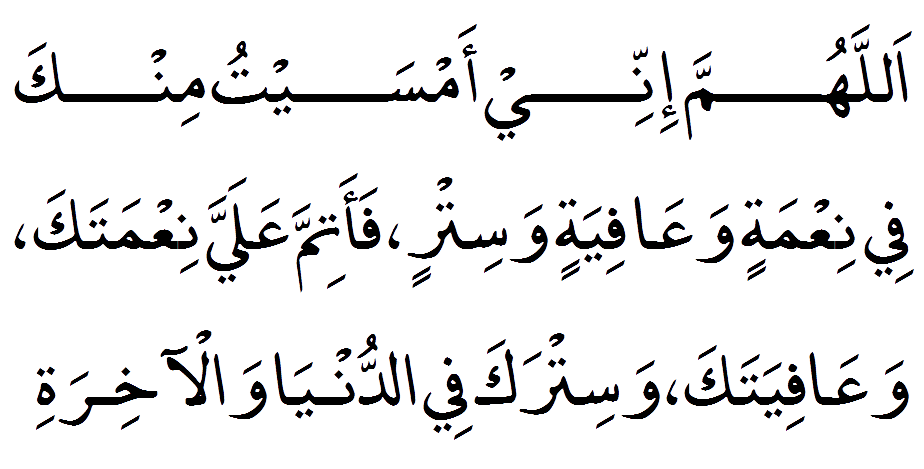 اَللَّهُمَّ إِنِّيْ أَمْسَيْتُ مِنْكَ
فِي نِعْمَةٍ وَ عَافِيَةٍ وَ سِتْرٍ، فَأَتِمَّ عَلَيَّ نِعْمَتَكَ،
وَ عَافِيَتَكَ، وَ سِتْرَكَ فِي الدُّنْيَا وَ الْآخِرَةِ